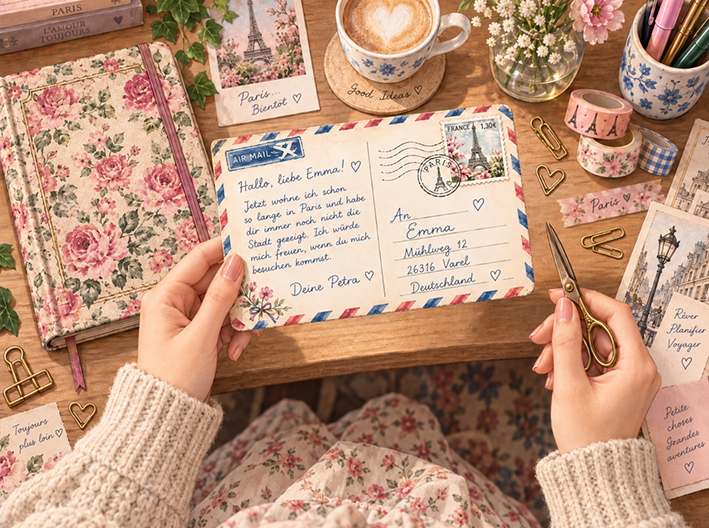 PARIS
L'AMOUR
TOUJOURS
Paris...
Bientôt ♡
Good Ideas ♡
AIR MAIL
Hallo, liebe Emma! ♡
Jetzt wohne ich schon
so lange in Paris und habe
dir immer noch nicht die
Stadt gezeigt. Ich würde
mich freuen, wenn du mich
besuchen kommst.
Deine Petra ♡
FRANCE 1,30€
PARIS
An
Emma
Mühlweg 12
26316 Varel
Deutschland
Paris ♡
Rêver
Planifier
Voyager
♡
Petite
choses
Grandes
aventures
♡
Toujours
plus loin ♡